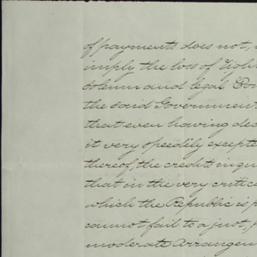 of payments does not,
imply the loss of
solemn and legal
the said Government
that even having
it very speedily
thereof, the credit in
that in the very critical
which the Republic is
cannot fail to a just,
moderate arrangem